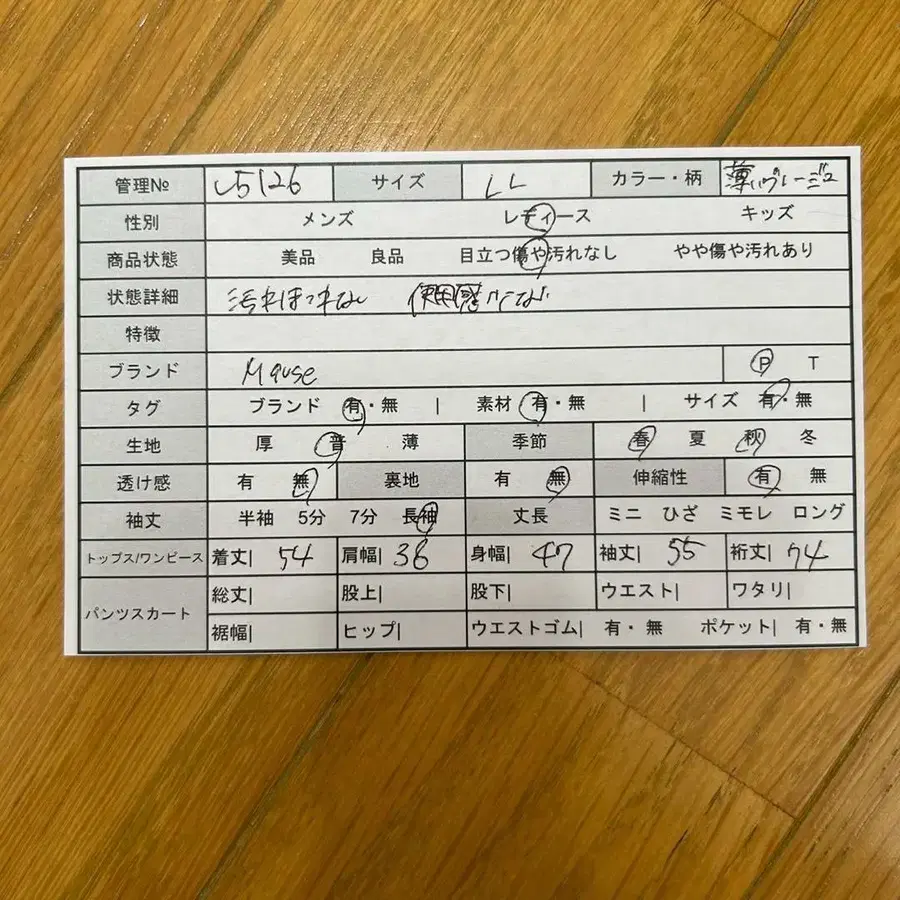 管理№ し5126 サイズ LL カラー・柄 薄いグレージュ
性別 メンズ レディース キッズ
商品状態 美品 良品 目立つ傷や汚れなし やや傷や汚れあり
状態詳細 汚れほつれなし 使用感
特徴
ブランド Mause P T
タグ ブランド 有・無 | 素材 有・無 | サイズ 有・無
生地 厚 普 薄 季節 春 夏 秋 冬
透け感 有 無 裏地 有 無 伸縮性 有 無
袖丈 半袖 5分 7分 長袖 丈長 ミニ ひざ ミモレ ロング
トップス/ワンピース 着丈| 54 肩幅| 36 身幅| 47 袖丈| 55 裄丈| 74
パンツスカート 総丈| 股上| 股下| ウエスト| ワタリ|
裾幅| ヒップ| ウエストゴム| 有・無 ポケット| 有・無